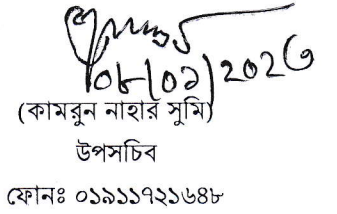 ০৮/০১/২০২৩
(কামরুন নাহার সুমি)
উপসচিব
ফোনঃ ০১৯১১৭২১৬৪৮